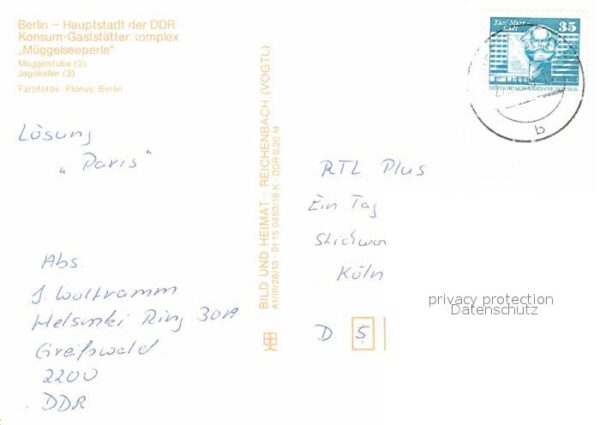 Berlin – Hauptstadt der DDR
Konsum-Gaststätten komplex
„Müggelseeperle"
Müggelstube (2)
Jagdkeller (3)
Farbfotos: Plonus, Berlin
Lösung
„Paris"
Abs.
J. Wolframm
Helsinki Ring 30A
Greifswald
2200
DDR
BILD UND HEIMAT · REICHENBACH (VOGTL)
A1/III/26/13 · 01 15 0453/16 K · DDR 0,20 M
Karl-Marx-
Stadt
35
b
RTL Plus
Ein Tag
Köln
D 5
privacy protection
Datenschutz